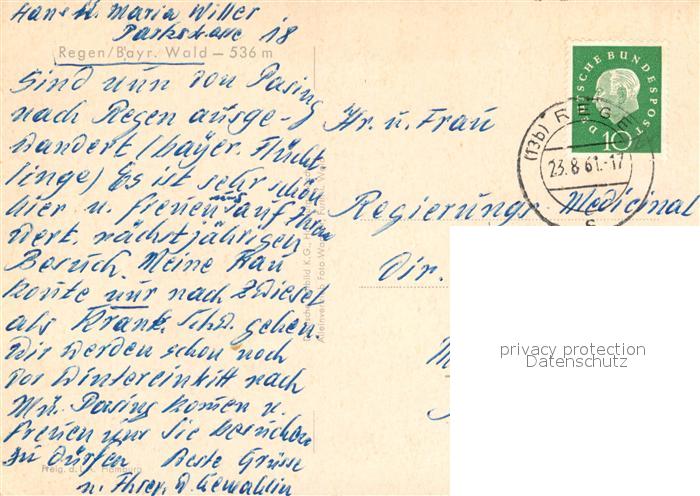 Hans u. Maria Willer
Parkstrasse 18
Regen/Bayr. Wald — 536 m
Sind nun von Pasing
nach Regen ausge-
wandert (bayer. Flücht
linge) Es ist sehr schön
hier u. freuen uns auf Ihren
wert. nächstjährigen
Besuch. Meine Frau
konte nur nach Zwiesel
als Krank. Schw. gehen.
Wir werden schon noch
vor Wintereintritt nach
Mü. Pasing komen u.
freuen uns Sie besuchen
zu dürfen Beste Grüsse
u. Ihrer w. Gemahlin
Freig. d. Hamburg
Hr. u. Frau
Regierungs Medicinal
Dir.
DEUTSCHE BUNDESPOST
10
(13b) REGEN
23.8.61.-17
privacy protection
Datenschutz